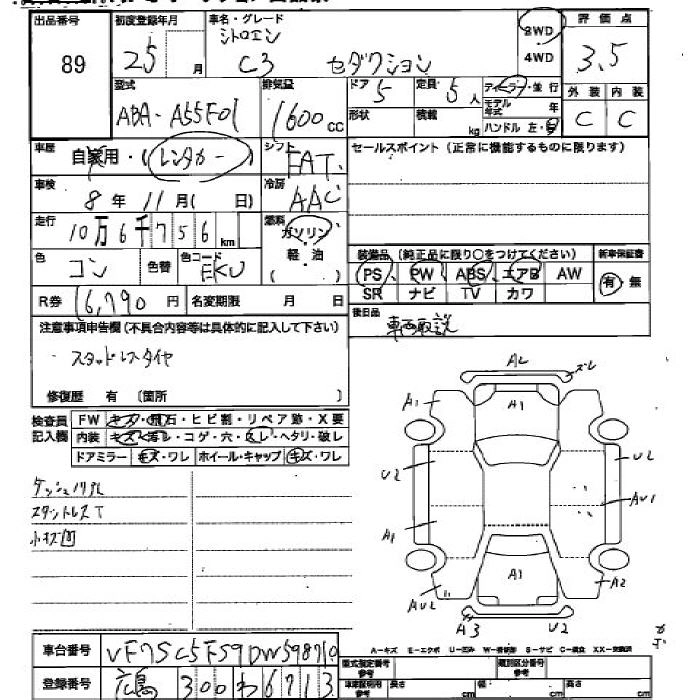 出品番号 初度登録年月 車名・グレード 評価点
シトロエン 2WD
89 25 月 C3 セダクション 4WD 3.5
型式 排気量 ドア 定員 ディーラー・並行 外装 内装
ABA-A55F01 1600 cc 5 5人 モデル年式 年 C C
形状 積載 kg ハンドル 左・右
車歴 自家用・(レンタカー) シフト FAT. セールスポイント(正常に機能するものに限ります)
車検 8年 11月( 日) 冷房 AAC
走行 10万6千756km 燃料 ガソリン
色 コン 色替 色コード EKU 軽油 ( ) 装備品(純正品に限り○をつけてください) 新車保証書
PS PW ABS エアB AW 有 無
R券 16,790円 名変期限 月 日 SR ナビ TV カワ
注意事項申告欄(不具合内容等は具体的に記入して下さい) 後日品 車両取説
スタッドレスタイヤ
修復歴 有 〔箇所 〕
検査員記入欄 FW キズ・飛石・ヒビ割・リペア跡・X要
内装 キズ・汚レ・コゲ・穴・スレ・ヘタリ・破レ
ドアミラー キズ・ワレ ホイール・キャップ キズ・ワレ
スタットレスT
小キズ凹
A2 ズレ
A1 A1
U2 U2
AU1
A1
A1 A2
AU2
A3 U2
A-キズ E-エクボ U-凹み W-補修跡 S-サビ C-腐食 XX-交換済
車台番号 VF7SC5FS9DW598710 型式指定番号 類別区分番号
登録番号 広島 300 わ 6713 車庫証明用参考 長さ cm 幅 cm 高さ cm